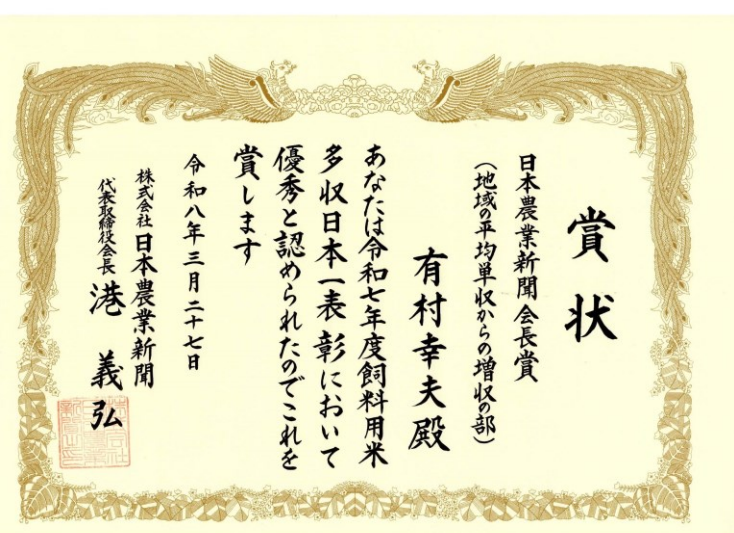 賞状
日本農業新聞会長賞
(地域の平均単収からの増収の部)
有村幸夫殿
あなたは令和七年度飼料用米
多収日本一表彰において
優秀と認められたのでこれを
賞します
令和八年三月二十七日
株式会社日本農業新聞
代表取締役会長 港 義弘